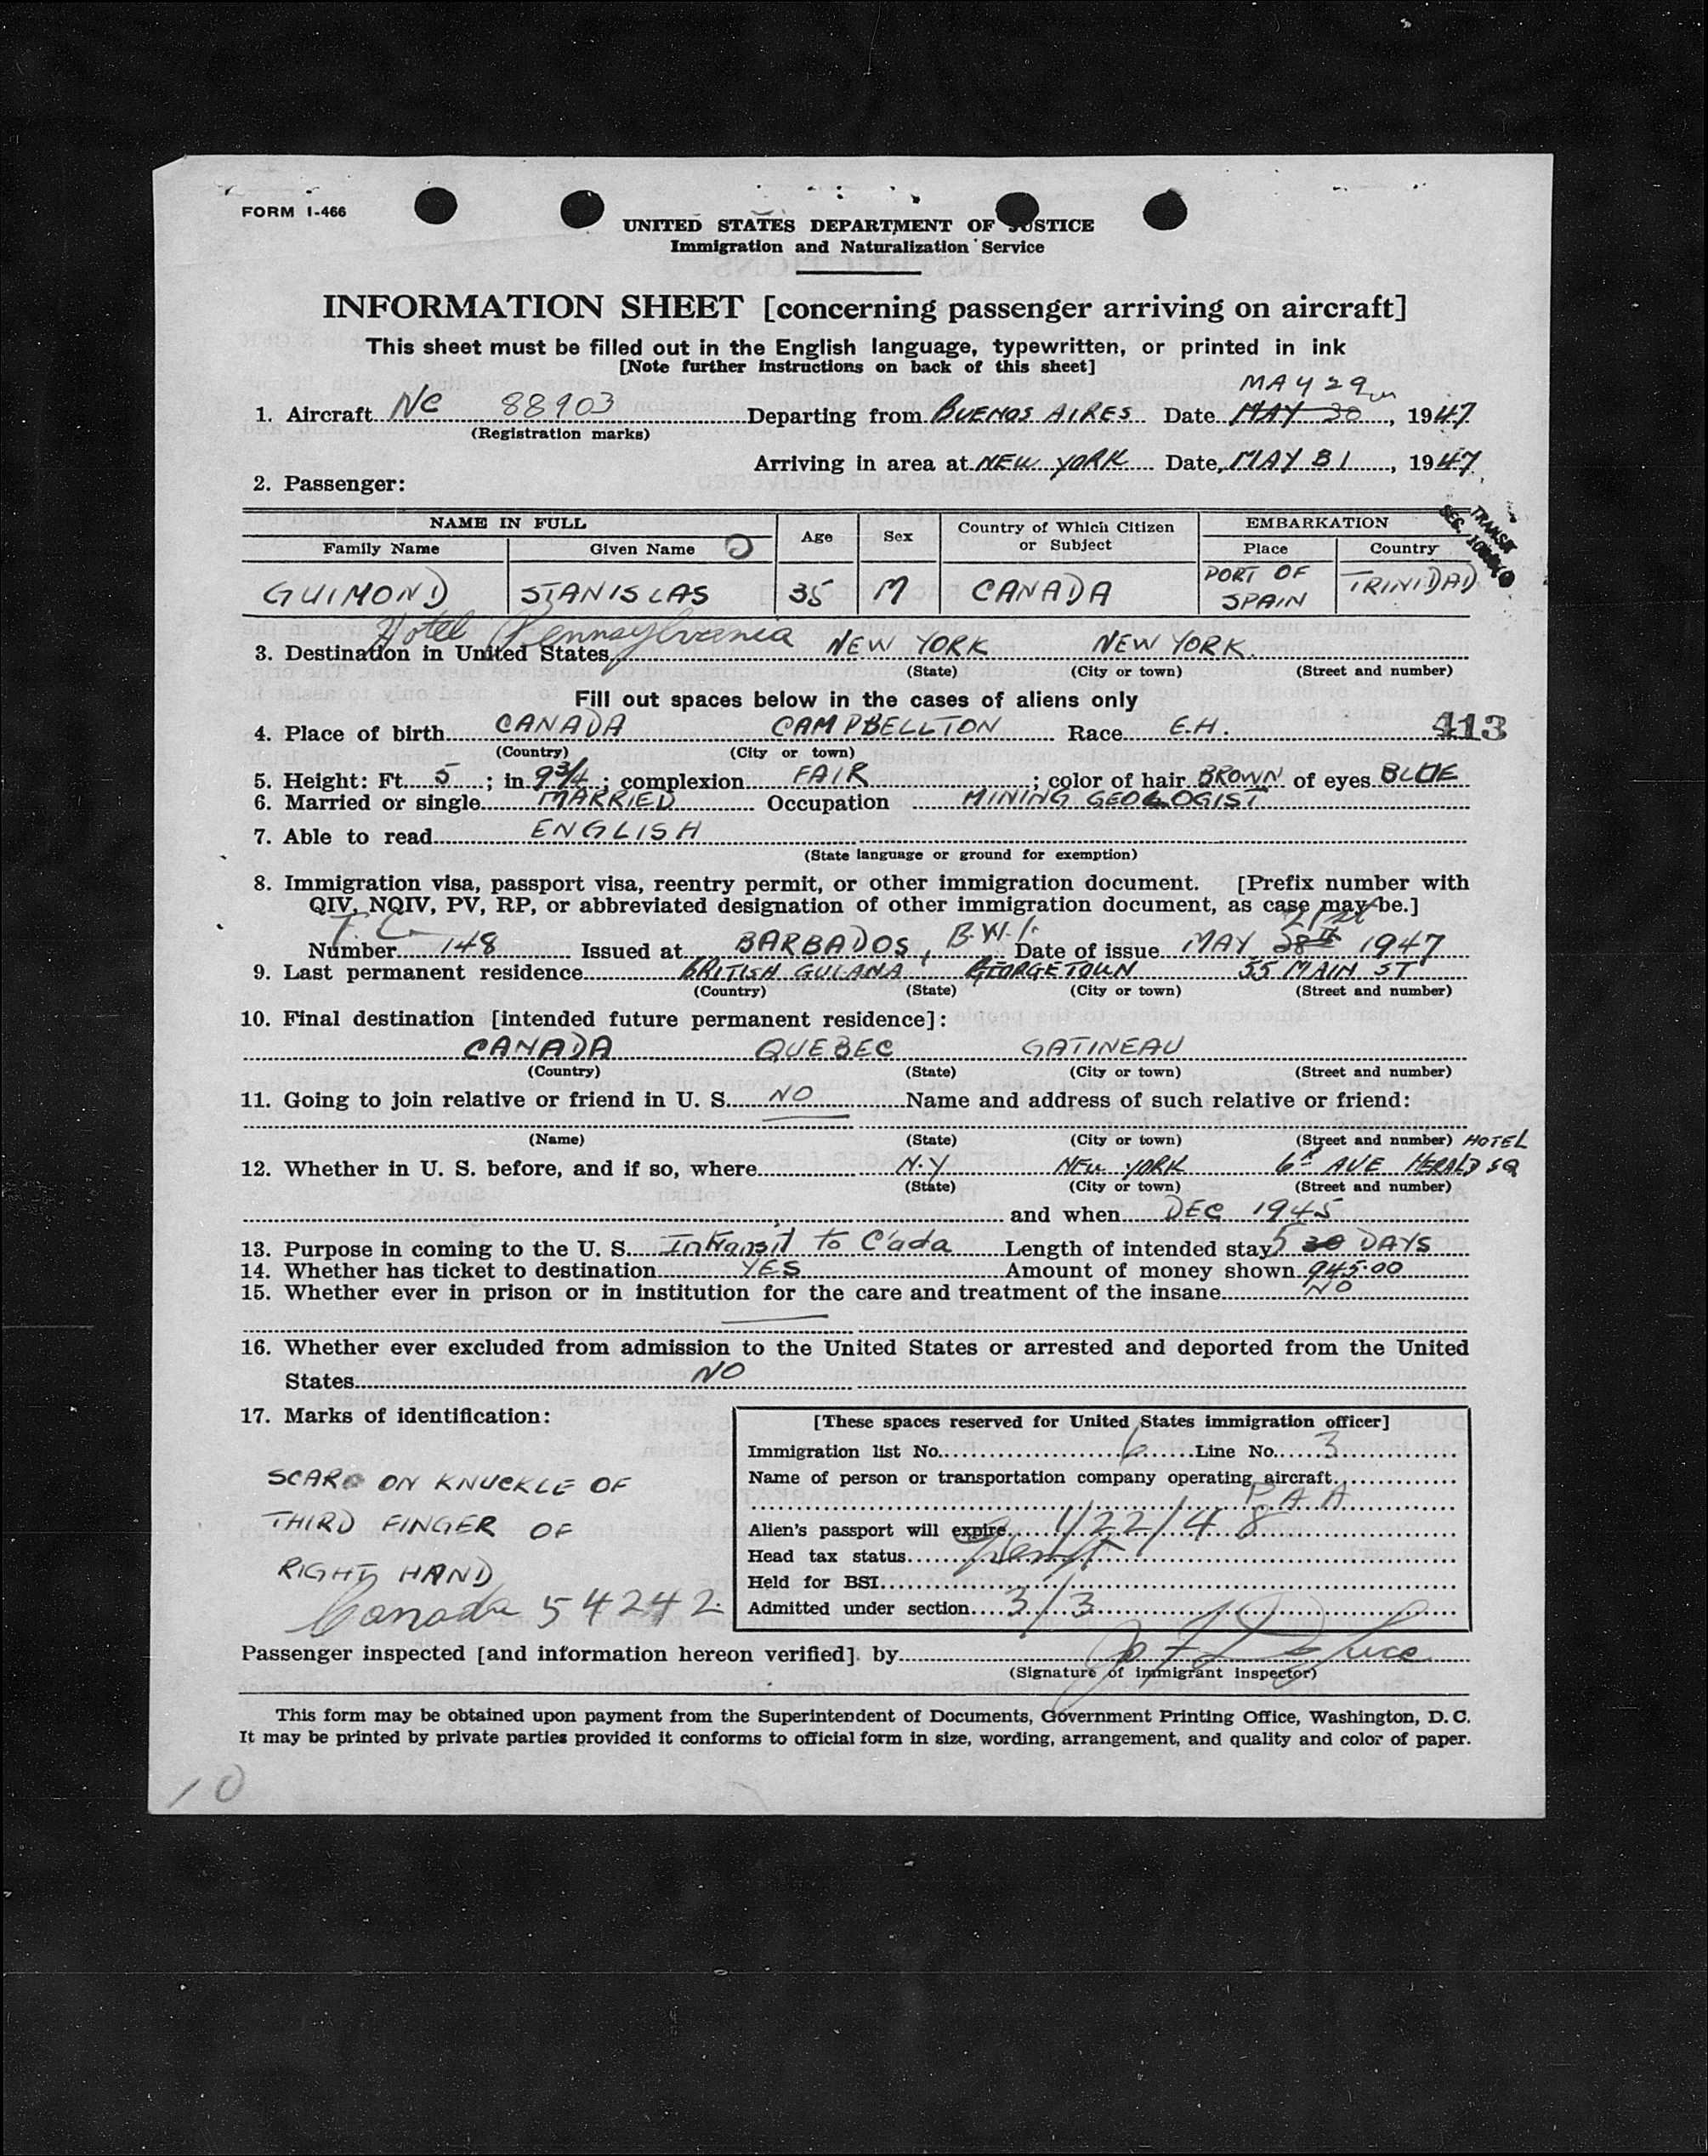 FORM I-466
UNITED STATES DEPARTMENT OF JUSTICE
Immigration and Naturalization Service
INFORMATION SHEET [concerning passenger arriving on aircraft]
This sheet must be filled out in the English language, typewritten, or printed in ink
[Note further instructions on back of this sheet]
MAY 29
1. Aircraft NC 88903 Departing from BUENOS AIRES Date MAY 30, 1947
(Registration marks)
Arriving in area at NEW YORK Date, MAY 31, 1947
2. Passenger:
NAME IN FULL Age Sex Country of Which Citizen or Subject EMBARKATION
Family Name Given Name Place Country
TRANSIT
SEC.
GUIMOND STANISLAS 35 M CANADA PORT OF SPAIN TRINIDAD
Hotel Pennsylvania
3. Destination in United States NEW YORK NEW YORK.
(State) (City or town) (Street and number)
Fill out spaces below in the cases of aliens only
4. Place of birth CANADA CAMPBELLTON Race E.H. 413
(Country) (City or town)
5. Height: Ft. 5; in. 9 3/4; complexion FAIR; color of hair BROWN of eyes BLUE
6. Married or single MARRIED Occupation MINING GEOLOGIST
7. Able to read ENGLISH
(State language or ground for exemption)
8. Immigration visa, passport visa, reentry permit, or other immigration document. [Prefix number with
QIV, NQIV, PV, RP, or abbreviated designation of other immigration document, as case may be.]
T.C. 21st
Number 148 Issued at BARBADOS, B.W.I. Date of issue MAY 28th 1947
9. Last permanent residence BRITISH GUIANA GEORGETOWN 55 MAIN ST
(Country) (State) (City or town) (Street and number)
10. Final destination [intended future permanent residence]:
CANADA QUEBEC GATINEAU
(Country) (State) (City or town) (Street and number)
11. Going to join relative or friend in U. S. NO Name and address of such relative or friend:
(Name) (State) (City or town) (Street and number) HOTEL
12. Whether in U. S. before, and if so, where N.Y NEW YORK 6th AVE HERALD SQ
(State) (City or town) (Street and number)
and when DEC 1945
13. Purpose in coming to the U. S. Intransit to C'ada Length of intended stay 5 30 DAYS
14. Whether has ticket to destination YES Amount of money shown 945.00
15. Whether ever in prison or in institution for the care and treatment of the insane NO
16. Whether ever excluded from admission to the United States or arrested and deported from the United
States NO
17. Marks of identification:
SCAR ON KNUCKLE OF
THIRD FINGER OF
RIGHT HAND
Canada 54242
[These spaces reserved for United States immigration officer]
Immigration list No. 6 Line No. 3
Name of person or transportation company operating aircraft
P.A.A
Alien's passport will expire 1/22/48
Head tax status
Held for BSI
Admitted under section 3/3
Passenger inspected [and information hereon verified] by
(Signature of immigrant inspector)
This form may be obtained upon payment from the Superintendent of Documents, Government Printing Office, Washington, D. C.
It may be printed by private parties provided it conforms to official form in size, wording, arrangement, and quality and color of paper.
10